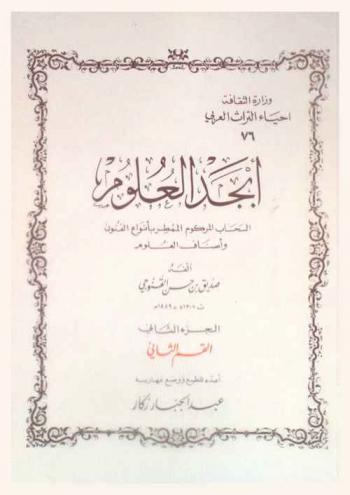 وزارة الثقافة
احياء التراث العربي
٧٦
أبجد العلوم
السحاب المركوم الممطر بأنواع الفنون
وأصناف العلوم
الفه
صديق بن حسن القنوجي
ت ١٣٠٧ه = ١٨٨٩م
الجزء الثاني
القسم الثاني
أعده للطبع ووضع فهارسه
عبد الجبار زكار